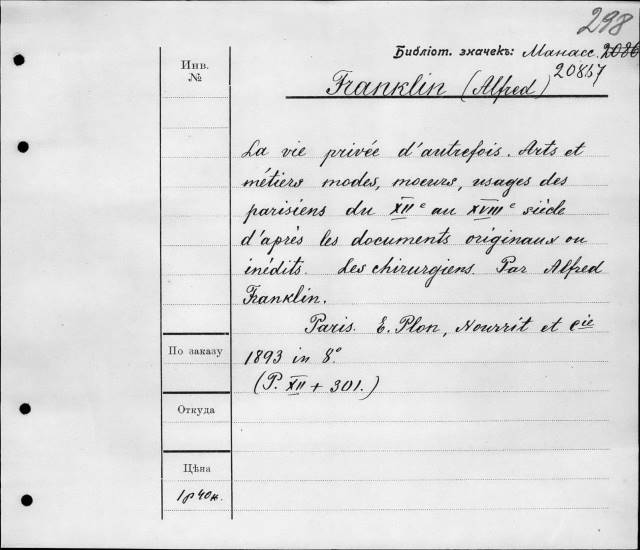 298
Библіот. значекъ: Манасс. 2086
20857
Инв.
№
Franklin (Alfred)
La vie privée d'autrefois. Arts et
métiers modes, moeurs, usages des
parisiens du XIIe au XVIIIe siècle
d'après les documents originaux ou
inédits. Les chirurgiens. Par Alfred
Franklin.
Paris. E. Plon, Nourrit et Cie
1893 in 8°
(P. XII + 301.)
По заказу
Откуда
Цѣна
1р 40к.